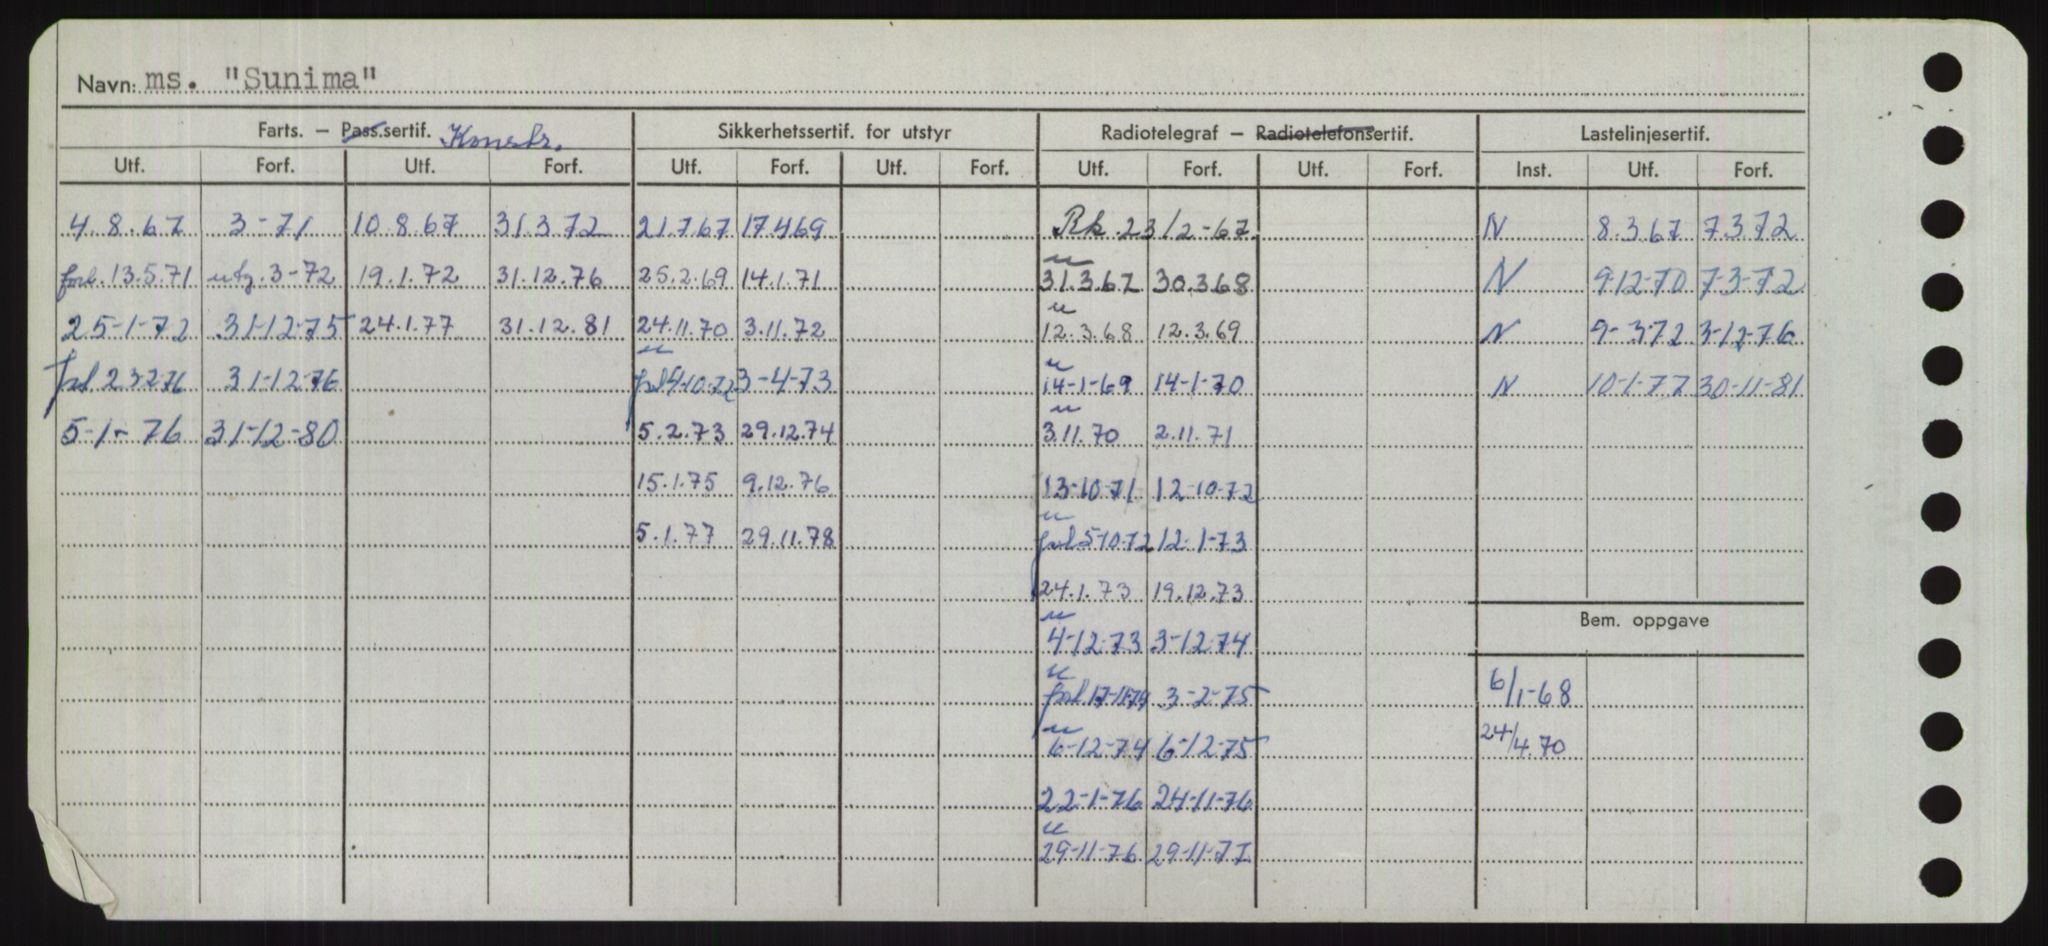 Navn: ms. "Sunima"
Farts. – Pass.sertif. Konstr. Sikkerhetssertif. for utstyr Radiotelegraf – Radiotelefonsertif. Lastelinjesertif.
Utf. Forf. Utf. Forf. Utf. Forf. Utf. Forf. Utf. Forf. Utf. Forf. Inst. Utf. Forf.
4.8.67 3-71 10.8.67 31.3.72 21.7.67 17.4.69 Rk. 23/2-67 N 8.3.67 7.3.72
forl. 13.5.71 utg. 3-72 19.1.72 31.12.76 25.2.69 14.1.71 u 31.3.67 30.3.68 N 9-12-70 7-3-72
25-1-72 31-12-75 24.1.77 31.12.81 24.11.70 3.11.72 u 12.3.68 12.3.69 N 9-3-72 3-12-76
forl 23-2-76 31-12-76 u forl 4-10-72 3-4-73 u 14-1-69 14-1-70 N 10-1-77 30-11-81
5-1-76 31-12-80 5.2.73 29.12.74 u 3.11.70 2.11.71
15.1.75 9.12.76 13-10-71 12-10-72
5.1.77 29.11.78 u forl 5-10-72 12-1-73
24.1.73 19.12.73
Bem. oppgave
u 4-12-73 3-12-74
u forl 17-11-74 3-2-75 6/1-68
u 6-12-74 6-12-75 24/4.70
22-1-76 24-11-76
u 29-11-76 29-11-77